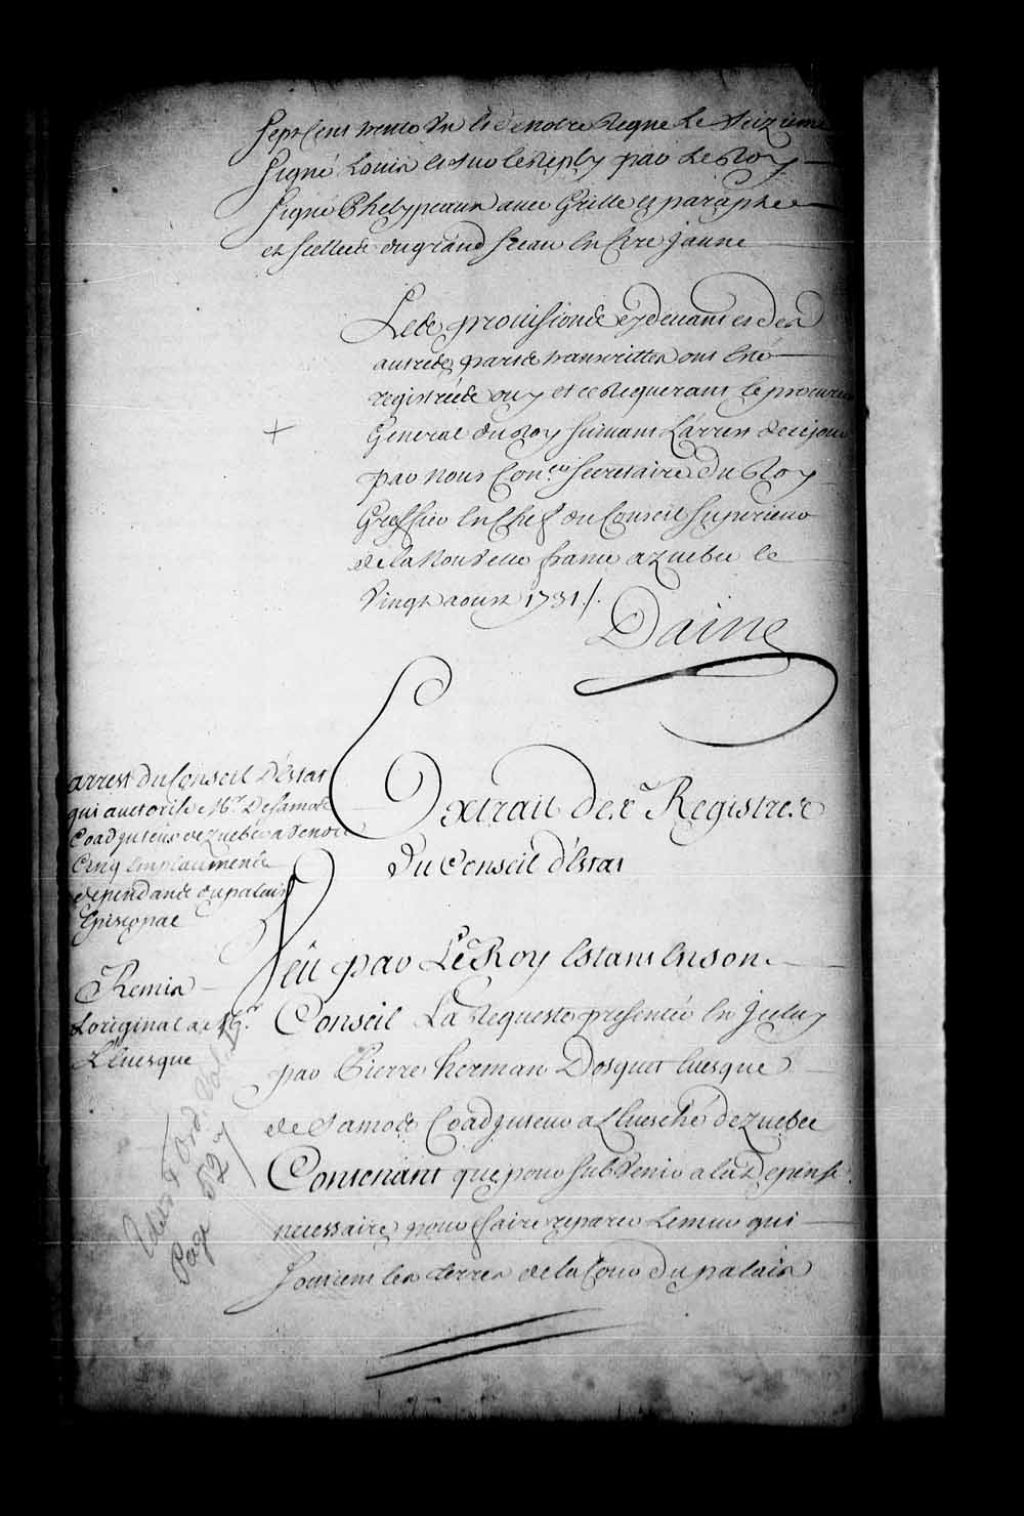 Sept Cens trente Un Et de notre Regne Le Seizieme
Signé Louis et sur le reply par Le Roy
Signé Phelypeaux avec Grille et paraphe
et scellée du grand sceau en Cire jaune
Les provisions cy devant et des
autres parts transcrittes ont été
registrées ouy et ce Requerant le procureur
General du Roy suivant L'arrest de ce jour
par nous Con.er secretaire du Roy
Greffier en Chef du Conseil Superieur
de la Nouvelle france a quebec le
Vingt aoust 1731 /.
Daine
arrest du Conseil D'Estat
qui auctorise Mr. De Samos
Coadjuteur de quebec a Vendre
Cinq Emplacements
dependans du palais
Episcopal
Remis
L'original a Mgr.
L'Evesque
Extrait des Registres
Du Conseil d'Estat
Veu par Le Roy Estant En son
Conseil La Requeste presentée En Icelluy
par Pierre herman Dosquet Evesque
de Samos Coadjuteur a L'Evesché de quebec
Contenant que pour subvenir a la Depense
necessaire pour faire reparer Le mur qui
soutient les terres de la Cour du palais
Edits & Ord. Vol. I
Page 527